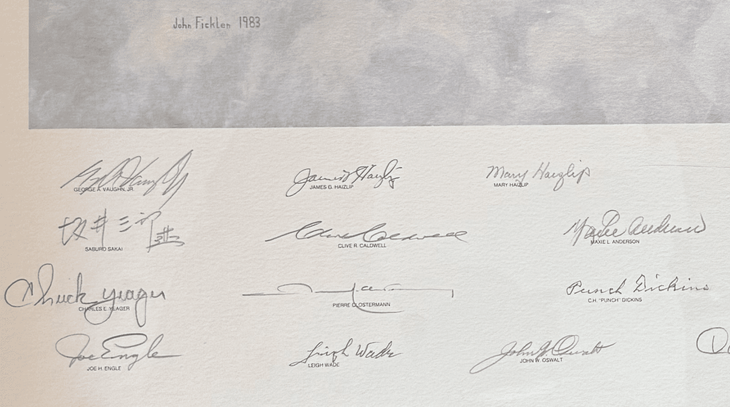 John Ficklen 1983
James G Haizlip Mary Haizlip
GEORGE A. VAUGHN, JR. JAMES G. HAIZLIP MARY HAIZLIP
坂井三郎 Clive Caldwell Maxie Anderson
SABURO SAKAI CLIVE R. CALDWELL MAXIE L. ANDERSON
Chuck Yeager Punch Dickins
CHARLES E. YEAGER PIERRE CLOSTERMANN C.H. "PUNCH" DICKINS
Joe Engle Leigh Wade John W Oswalt
JOE H. ENGLE LEIGH WADE JOHN W. OSWALT